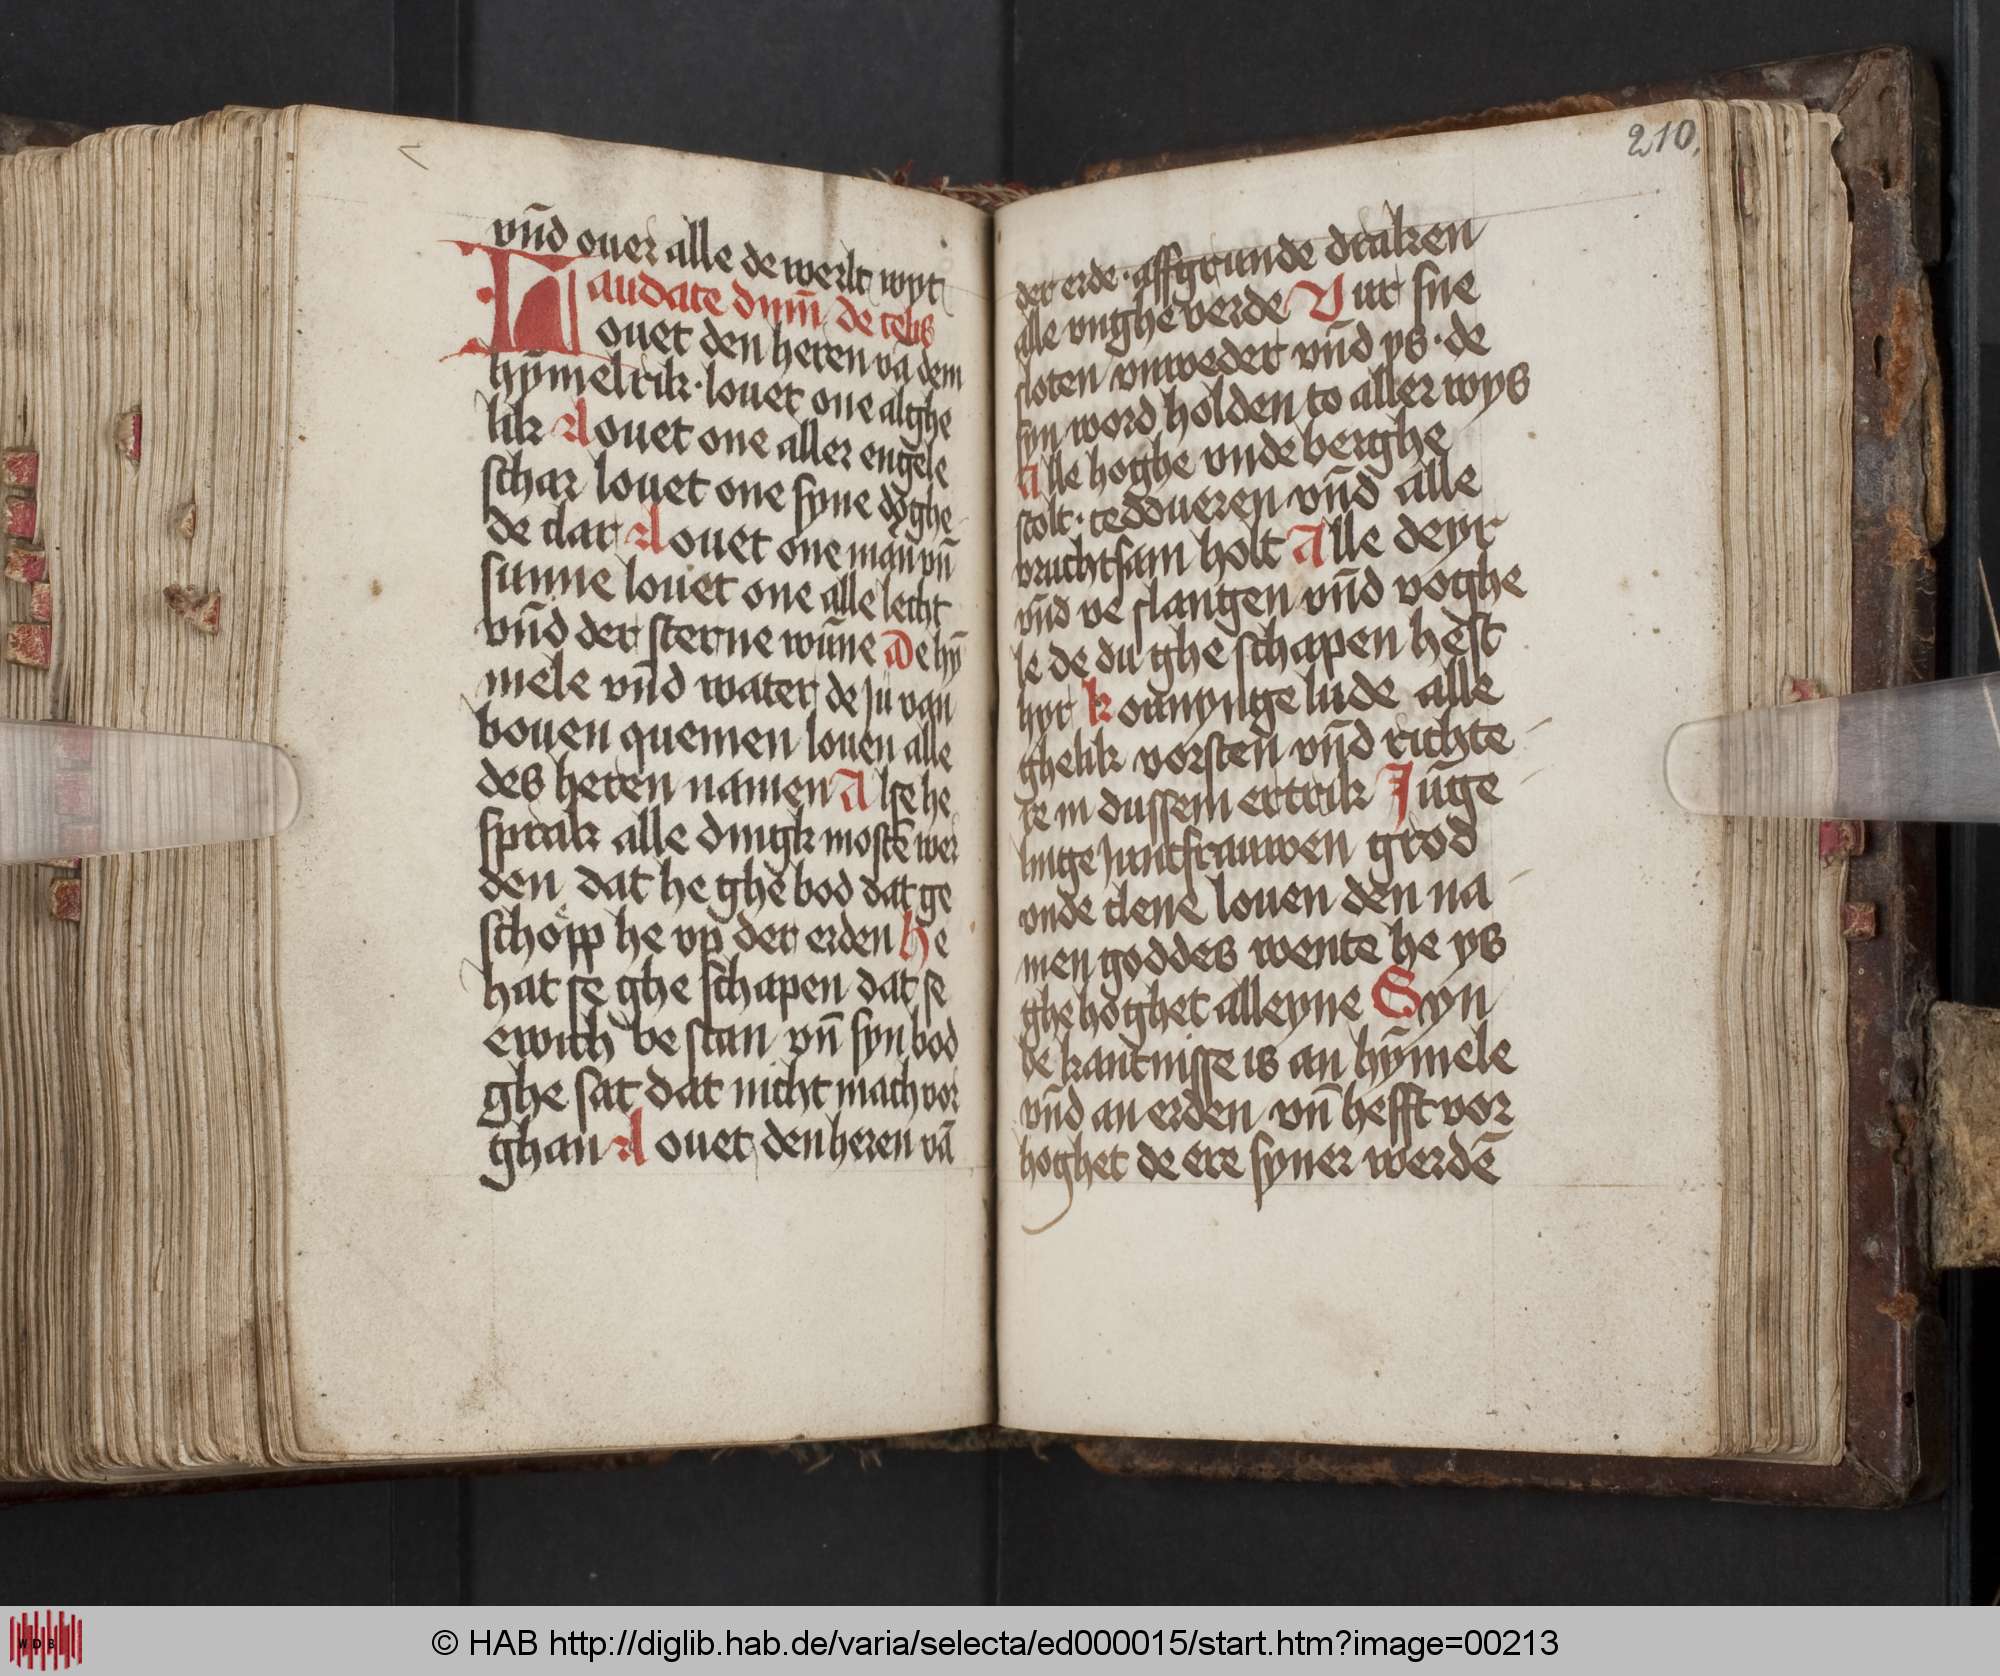 vn̄d ouer alle de werlt wyt
Laudate dnm̄ de celis
Louet den heren vā dem
hȳmelrik · louet one alghe
lik Louet one aller engele
schar louet one syne doghe
de clar Louet one man vn̄
sunne louet one alle lecht
vn̄d der sterne wūne De hȳ
mele vn̄d water de ju van
bouen quemen louen alle
des heren namen Alse he
sprak alle dingk mostē wer
den dat he ghe bod dat ge
schöpp he vp der erden He
hat se ghe schapen dat se
ewich be stan vn̄ syn bod
ghe sat dat nicht mach vor
ghan Louet den heren vā
210,
der erde · affgrunde draken
alle vnghe verde Vur sne
sloten vnweder vn̄d ys · de
syn word holden to aller wys
Alle hoghe vnde berghe
stolt · ceddueren vn̄d alle
vruchtsam holt Alle deyr
vn̄d ve slangen vn̄d voghe
le de du ghe schapen hest
hyr konnynge lude alle
ghelik vorsten vn̄d richte
re in dussem ertrik Jūge
linge Juncfrauwen grod
vnde clene louen den na
men goddes wente he ys
ghe hoghet alleyne Syn
be kantnisse is an hȳmele
vn̄d an erden vn̄ hefft vor
hoghet de ere syner werdē
WDB
© HAB http://diglib.hab.de/varia/selecta/ed000015/start.htm?image=00213